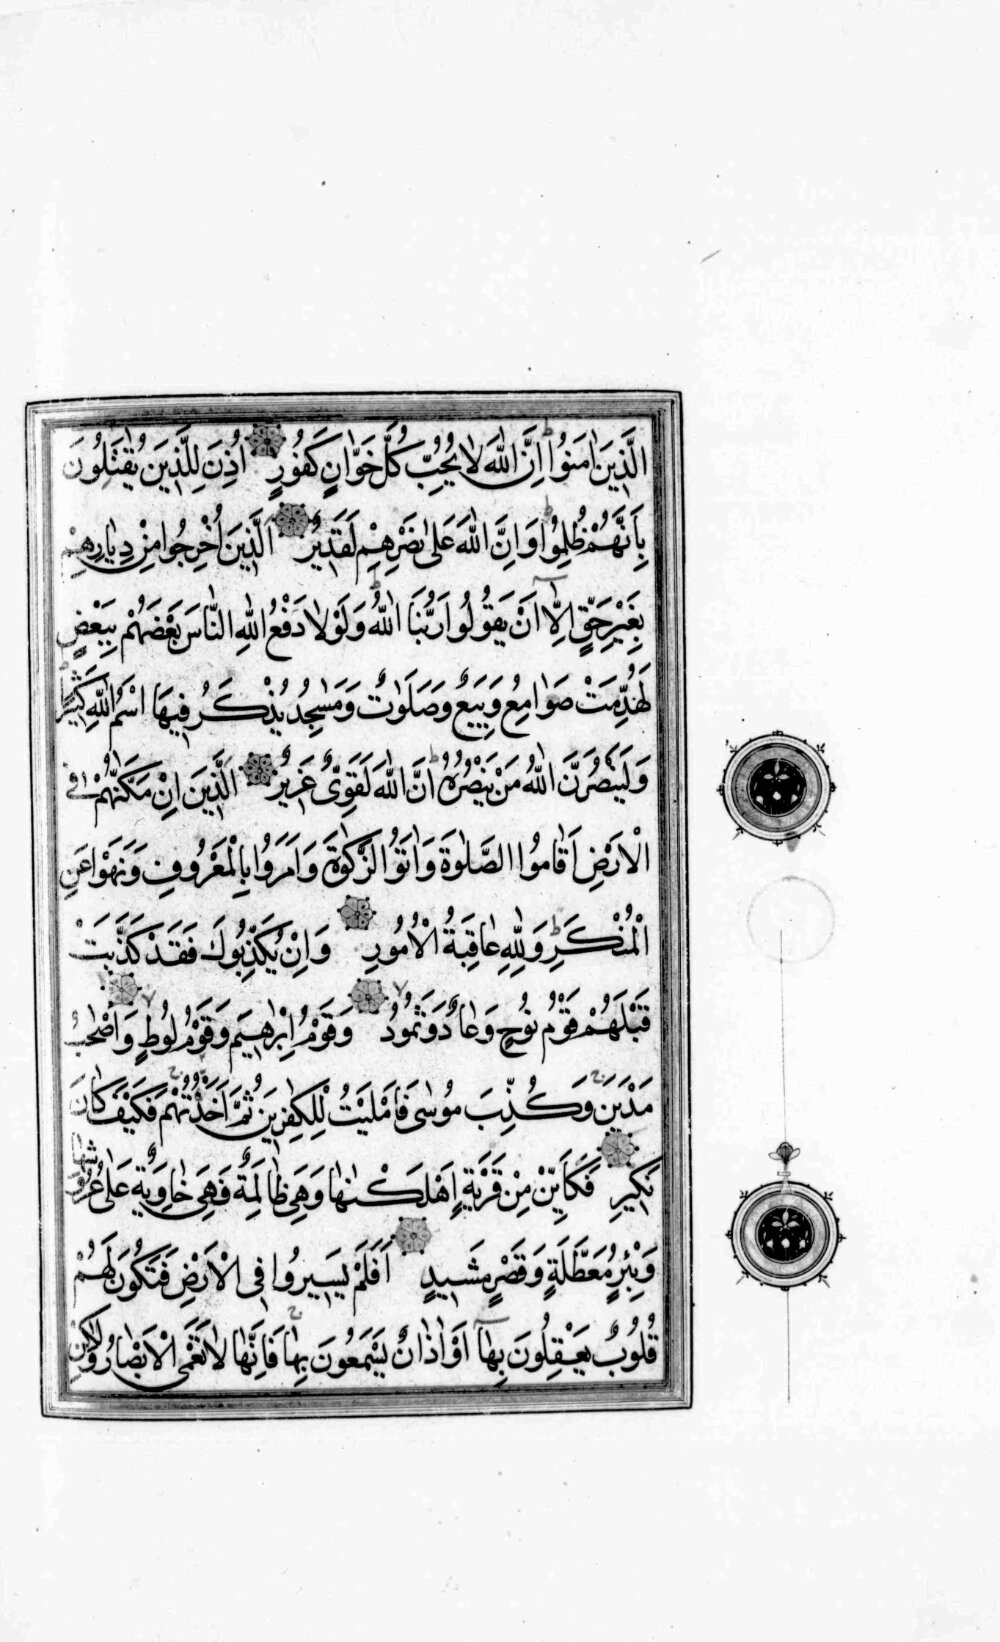 الَّذِينَ اٰمَنُوا اِنَّ اللّٰهَ لَا يُحِبُّ كُلَّ خَوَّانٍ كَفُورٍ اُذِنَ لِلَّذِينَ يُقٰتَلُونَ
بِاَنَّهُمْ ظُلِمُوا وَاِنَّ اللّٰهَ عَلٰى نَصْرِهِمْ لَقَدِيرٌ الَّذِينَ اُخْرِجُوا مِنْ دِيَارِهِمْ
بِغَيْرِ حَقٍّ اِلَّا اَنْ يَقُولُوا رَبُّنَا اللّٰهُ وَلَوْلَا دَفْعُ اللّٰهِ النَّاسَ بَعْضَهُمْ بِبَعْضٍ
لَهُدِّمَتْ صَوَامِعُ وَبِيَعٌ وَصَلَوٰتٌ وَمَسٰجِدُ يُذْكَرُ فِيهَا اسْمُ اللّٰهِ كَثِيرًا
وَلَيَنْصُرَنَّ اللّٰهُ مَنْ يَنْصُرُهُ اِنَّ اللّٰهَ لَقَوِىٌّ عَزِيزٌ الَّذِينَ اِنْ مَكَّنّٰهُمْ فِى
الْاَرْضِ اَقَامُوا الصَّلٰوةَ وَاٰتَوُا الزَّكٰوةَ وَاَمَرُوا بِالْمَعْرُوفِ وَنَهَوْا عَنِ
الْمُنْكَرِ وَلِلّٰهِ عَاقِبَةُ الْاُمُورِ وَاِنْ يُكَذِّبُوكَ فَقَدْ كَذَّبَتْ
قَبْلَهُمْ قَوْمُ نُوحٍ وَعَادٌ وَثَمُودُ وَقَوْمُ اِبْرٰهِيمَ وَقَوْمُ لُوطٍ وَاَصْحٰبُ
مَدْيَنَ وَكُذِّبَ مُوسٰى فَاَمْلَيْتُ لِلْكٰفِرِينَ ثُمَّ اَخَذْتُهُمْ فَكَيْفَ كَانَ
نَكِيرِ فَكَاَيِّنْ مِنْ قَرْيَةٍ اَهْلَكْنٰهَا وَهِىَ ظَالِمَةٌ فَهِىَ خَاوِيَةٌ عَلٰى عُرُوشِهَا
وَبِئْرٍ مُعَطَّلَةٍ وَقَصْرٍ مَشِيدٍ اَفَلَمْ يَسِيرُوا فِى الْاَرْضِ فَتَكُونَ لَهُمْ
قُلُوبٌ يَعْقِلُونَ بِهَا اَوْ اٰذَانٌ يَسْمَعُونَ بِهَا فَاِنَّهَا لَا تَعْمَى الْاَبْصَارُ وَلٰكِنْ